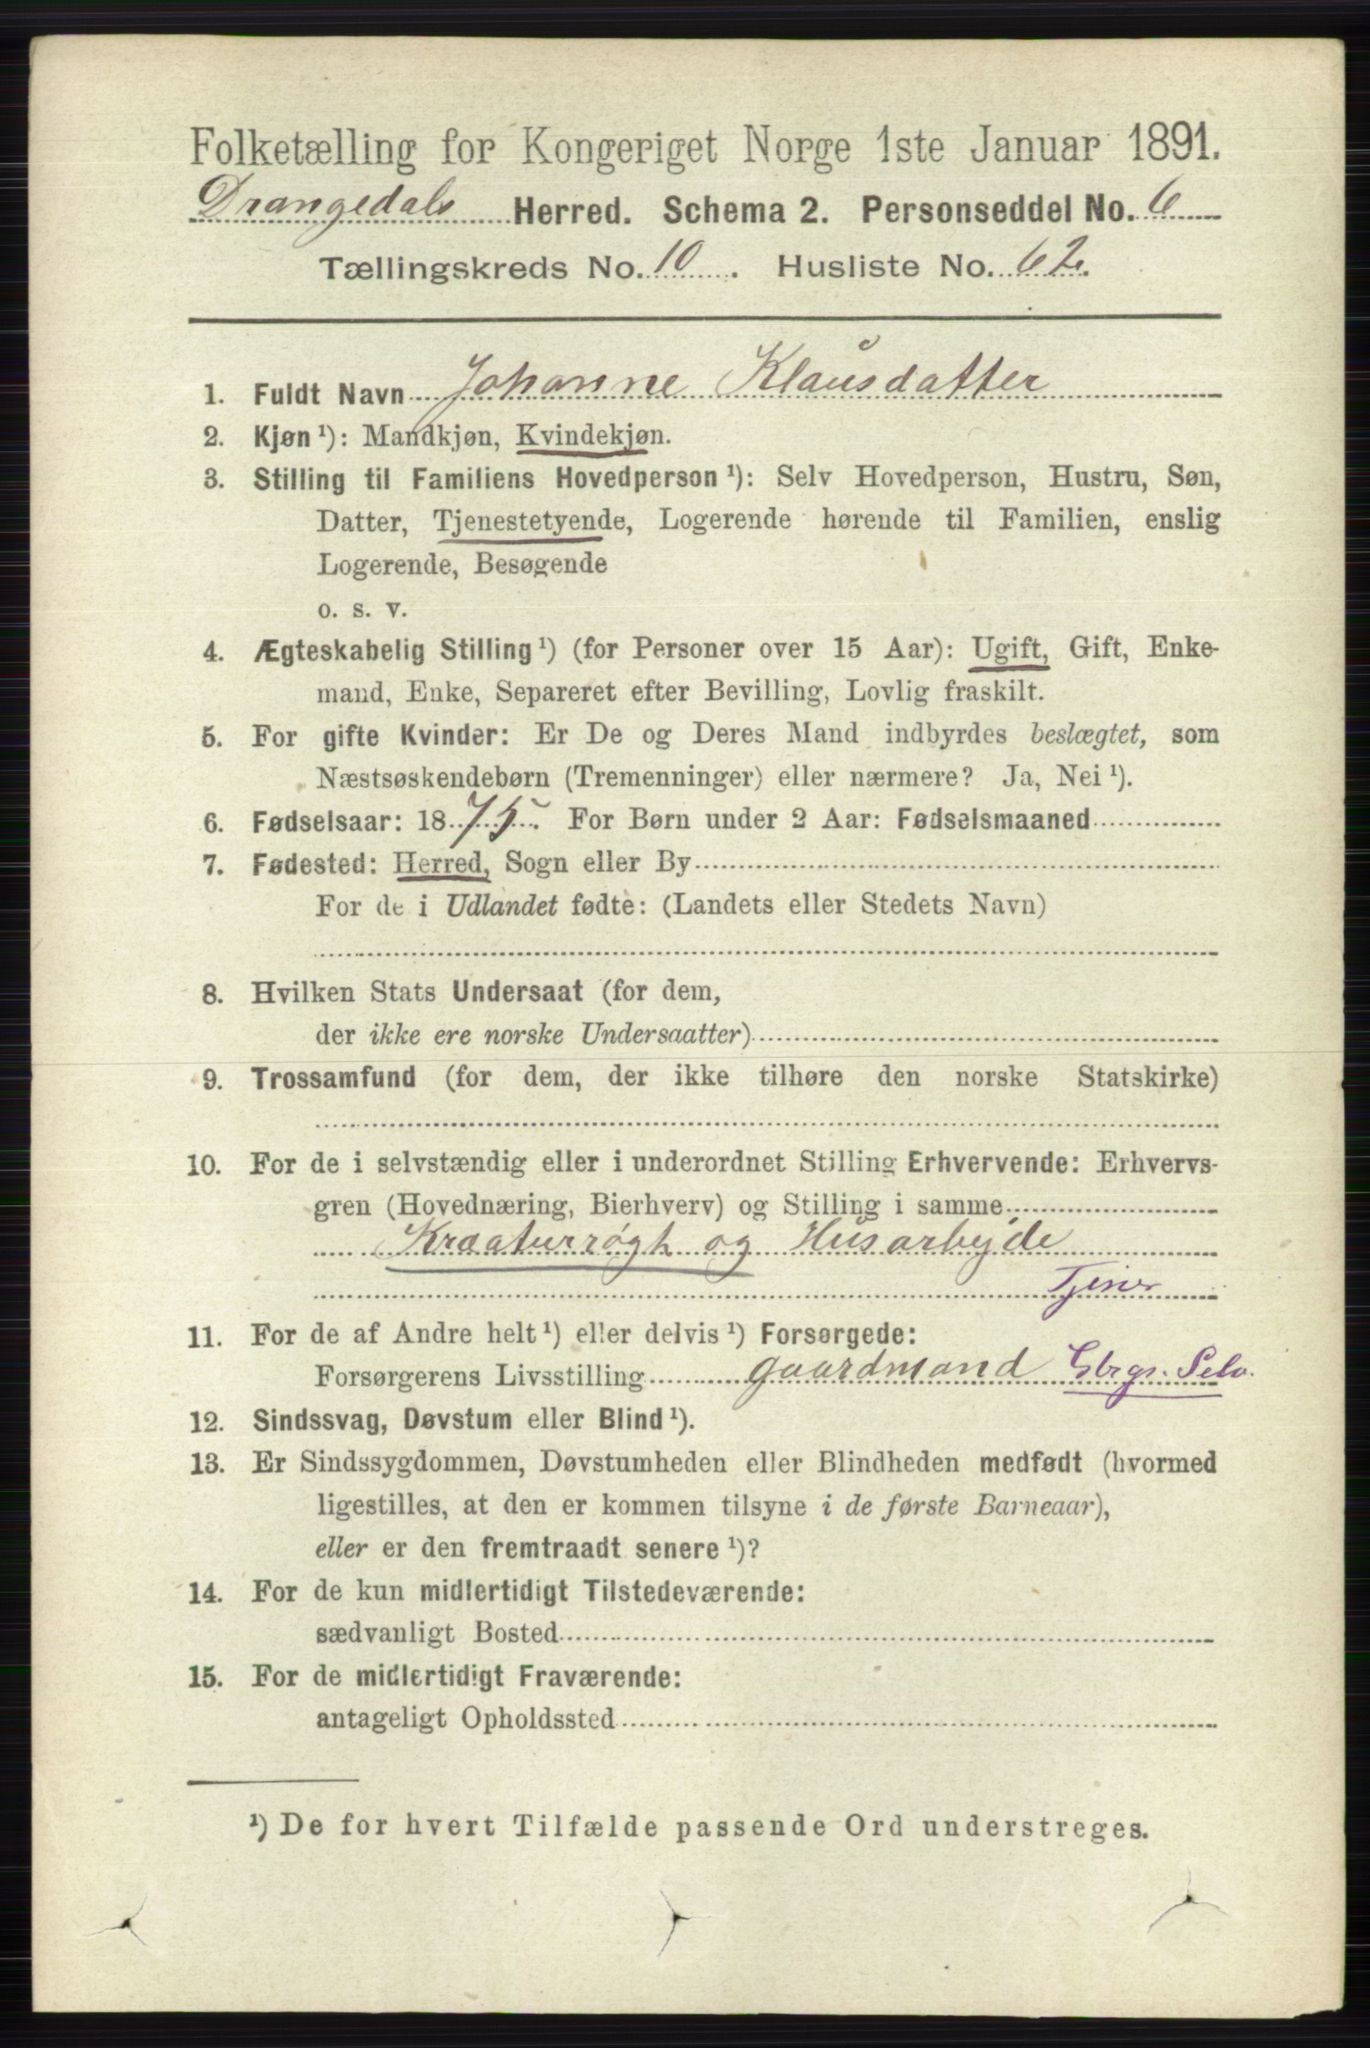 Folketælling for Kongeriget Norge 1ste Januar 1891.
Drangedals Herred. Schema 2. Personseddel No. 6
Tællingskreds No. 10. Husliste No. 62.
1. Fuldt Navn Johanne Klausdatter
2. Kjøn ¹): Mandkjøn, Kvindekjøn.
3. Stilling til Familiens Hovedperson ¹): Selv Hovedperson, Hustru, Søn,
Datter, Tjenestetyende, Logerende hørende til Familien, enslig
Logerende, Besøgende
o. s. v.
4. Ægteskabelig Stilling ¹) (for Personer over 15 Aar): Ugift, Gift, Enke-
mand, Enke, Separeret efter Bevilling, Lovlig fraskilt.
5. For gifte Kvinder: Er De og Deres Mand indbyrdes beslægtet, som
Næstsøskendebørn (Tremenninger) eller nærmere? Ja, Nei ¹).
6. Fødselsaar: 1875. For Børn under 2 Aar: Fødselsmaaned
7. Fødested: Herred, Sogn eller By
For de i Udlandet fødte: (Landets eller Stedets Navn)
8. Hvilken Stats Undersaat (for dem,
der ikke ere norske Undersaatter)
9. Trossamfund (for dem, der ikke tilhøre den norske Statskirke)
10. For de i selvstændig eller i underordnet Stilling Erhvervende: Erhvervs-
gren (Hovednæring, Bierhverv) og Stilling i samme
Kraaturrøgt og Husarbejde
Tjener
11. For de af Andre helt ¹) eller delvis ¹) Forsørgede:
Forsørgerens Livsstilling gaardmand Gbrgr. Selv.
12. Sindssvag, Døvstum eller Blind ¹).
13. Er Sindssygdommen, Døvstumheden eller Blindheden medfødt (hvormed
ligestilles, at den er kommen tilsyne i de første Barneaar),
eller er den fremtraadt senere ¹)?
14. For de kun midlertidigt Tilstedeværende:
sædvanligt Bosted
15. For de midlertidigt Fraværende:
antageligt Opholdssted
¹) De for hvert Tilfælde passende Ord understreges.